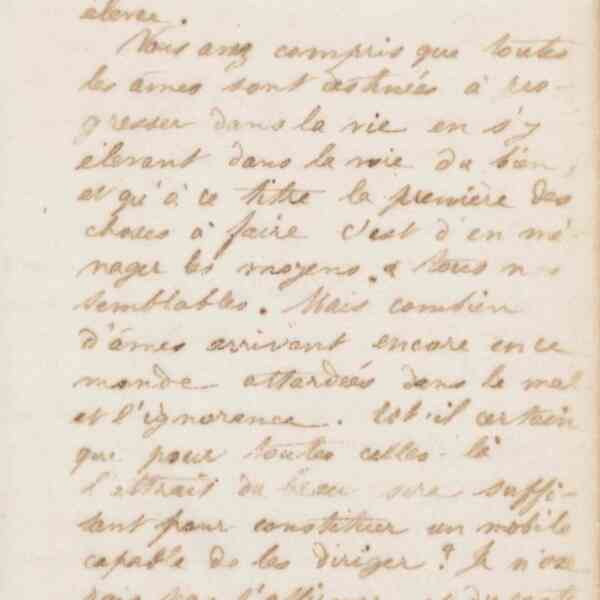 Vous avez compris que toutes
les âmes sont destinées à pro-
gresser dans la vie en s'y
élevant dans la voie du bien,
et qu'à ce titre la première des
choses à faire c'est d'en mé-
nager les moyens à tous nos
semblables. Mais combien
d'âmes arrivant encore en ce
monde attardées dans le mal
et l'ignorance. Est-il certain
que pour toutes celles-là
l'attrait du beau sera suffi-
sant pour constituer un mobile
capable de les diriger ? Je n'ose-
rais pas l'affirmer